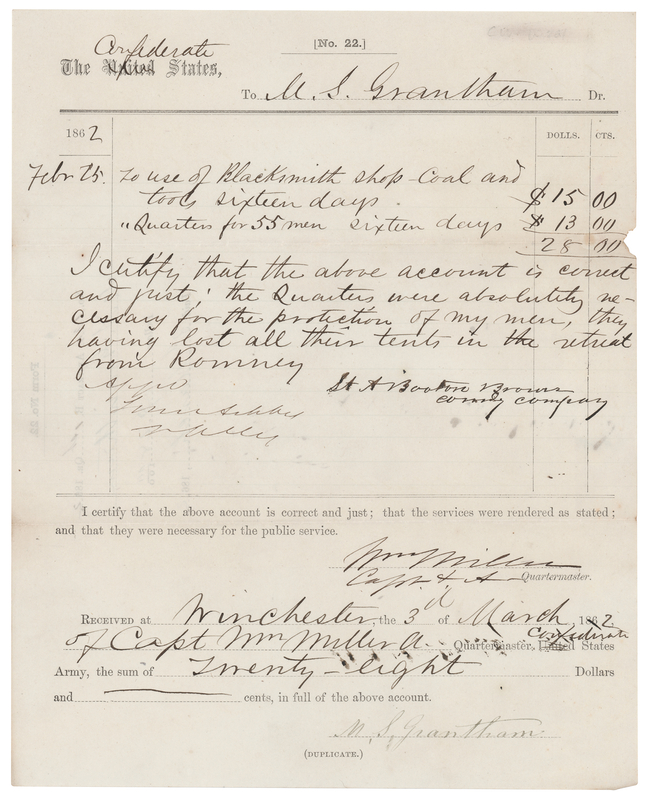 [No. 22.]
Confederate
The United States,
To M. S. Grantham Dr.
1862 DOLLS. CTS.
Febr 25. To use of Blacksmith shop Coal and
tools sixteen days. $ 15 00
" Quarters for 55 men sixteen days $ 13 00
28 00
I certify that the above account is correct
and just; the Quarters were absolutely ne-
cessary for the protection of my men, they
having lost all their tents in the retreat
from Romney
Lt A Booton
comdg company
I certify that the above account is correct and just; that the services were rendered as stated;
and that they were necessary for the public service.
Wm Miller
Capt & A Quartermaster.
RECEIVED at Winchester, the 3d of March, 1862
of Capt Wm Miller A. Quartermaster, Confederate United States
Army, the sum of Twenty-eight Dollars
and cents, in full of the above account.
M. S. Grantham.
(DUPLICATE.)